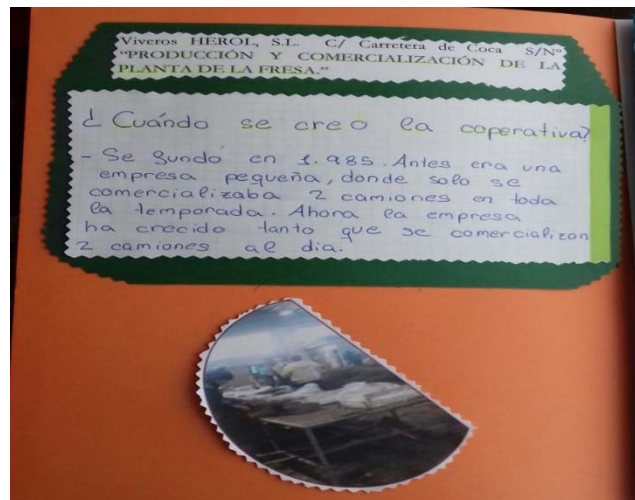 Viveros HEROL, S.L. C/ Carretera de Coca S/Nº
“PRODUCCIÓN Y COMERCIALIZACIÓN DE LA
PLANTA DE LA FRESA.”
¿ Cuándo se creo la coperativa?
- Se fundo en 1.985. Antes era una
empresa pequeña, donde solo se
comercializaba 2 camiones en toda
la temporada. Ahora la empresa
ha crecido tanto que se comercializan
2 camiones al dia.